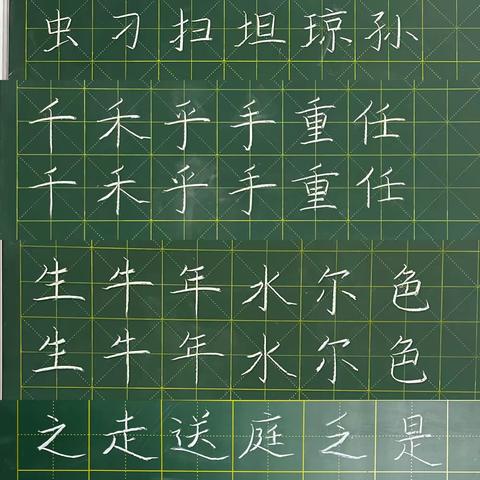 虫刁扫坦琼孙
千禾乎手重任
千禾乎手重任
生牛年水尔色
生牛年水尔色
之走送庭乏是